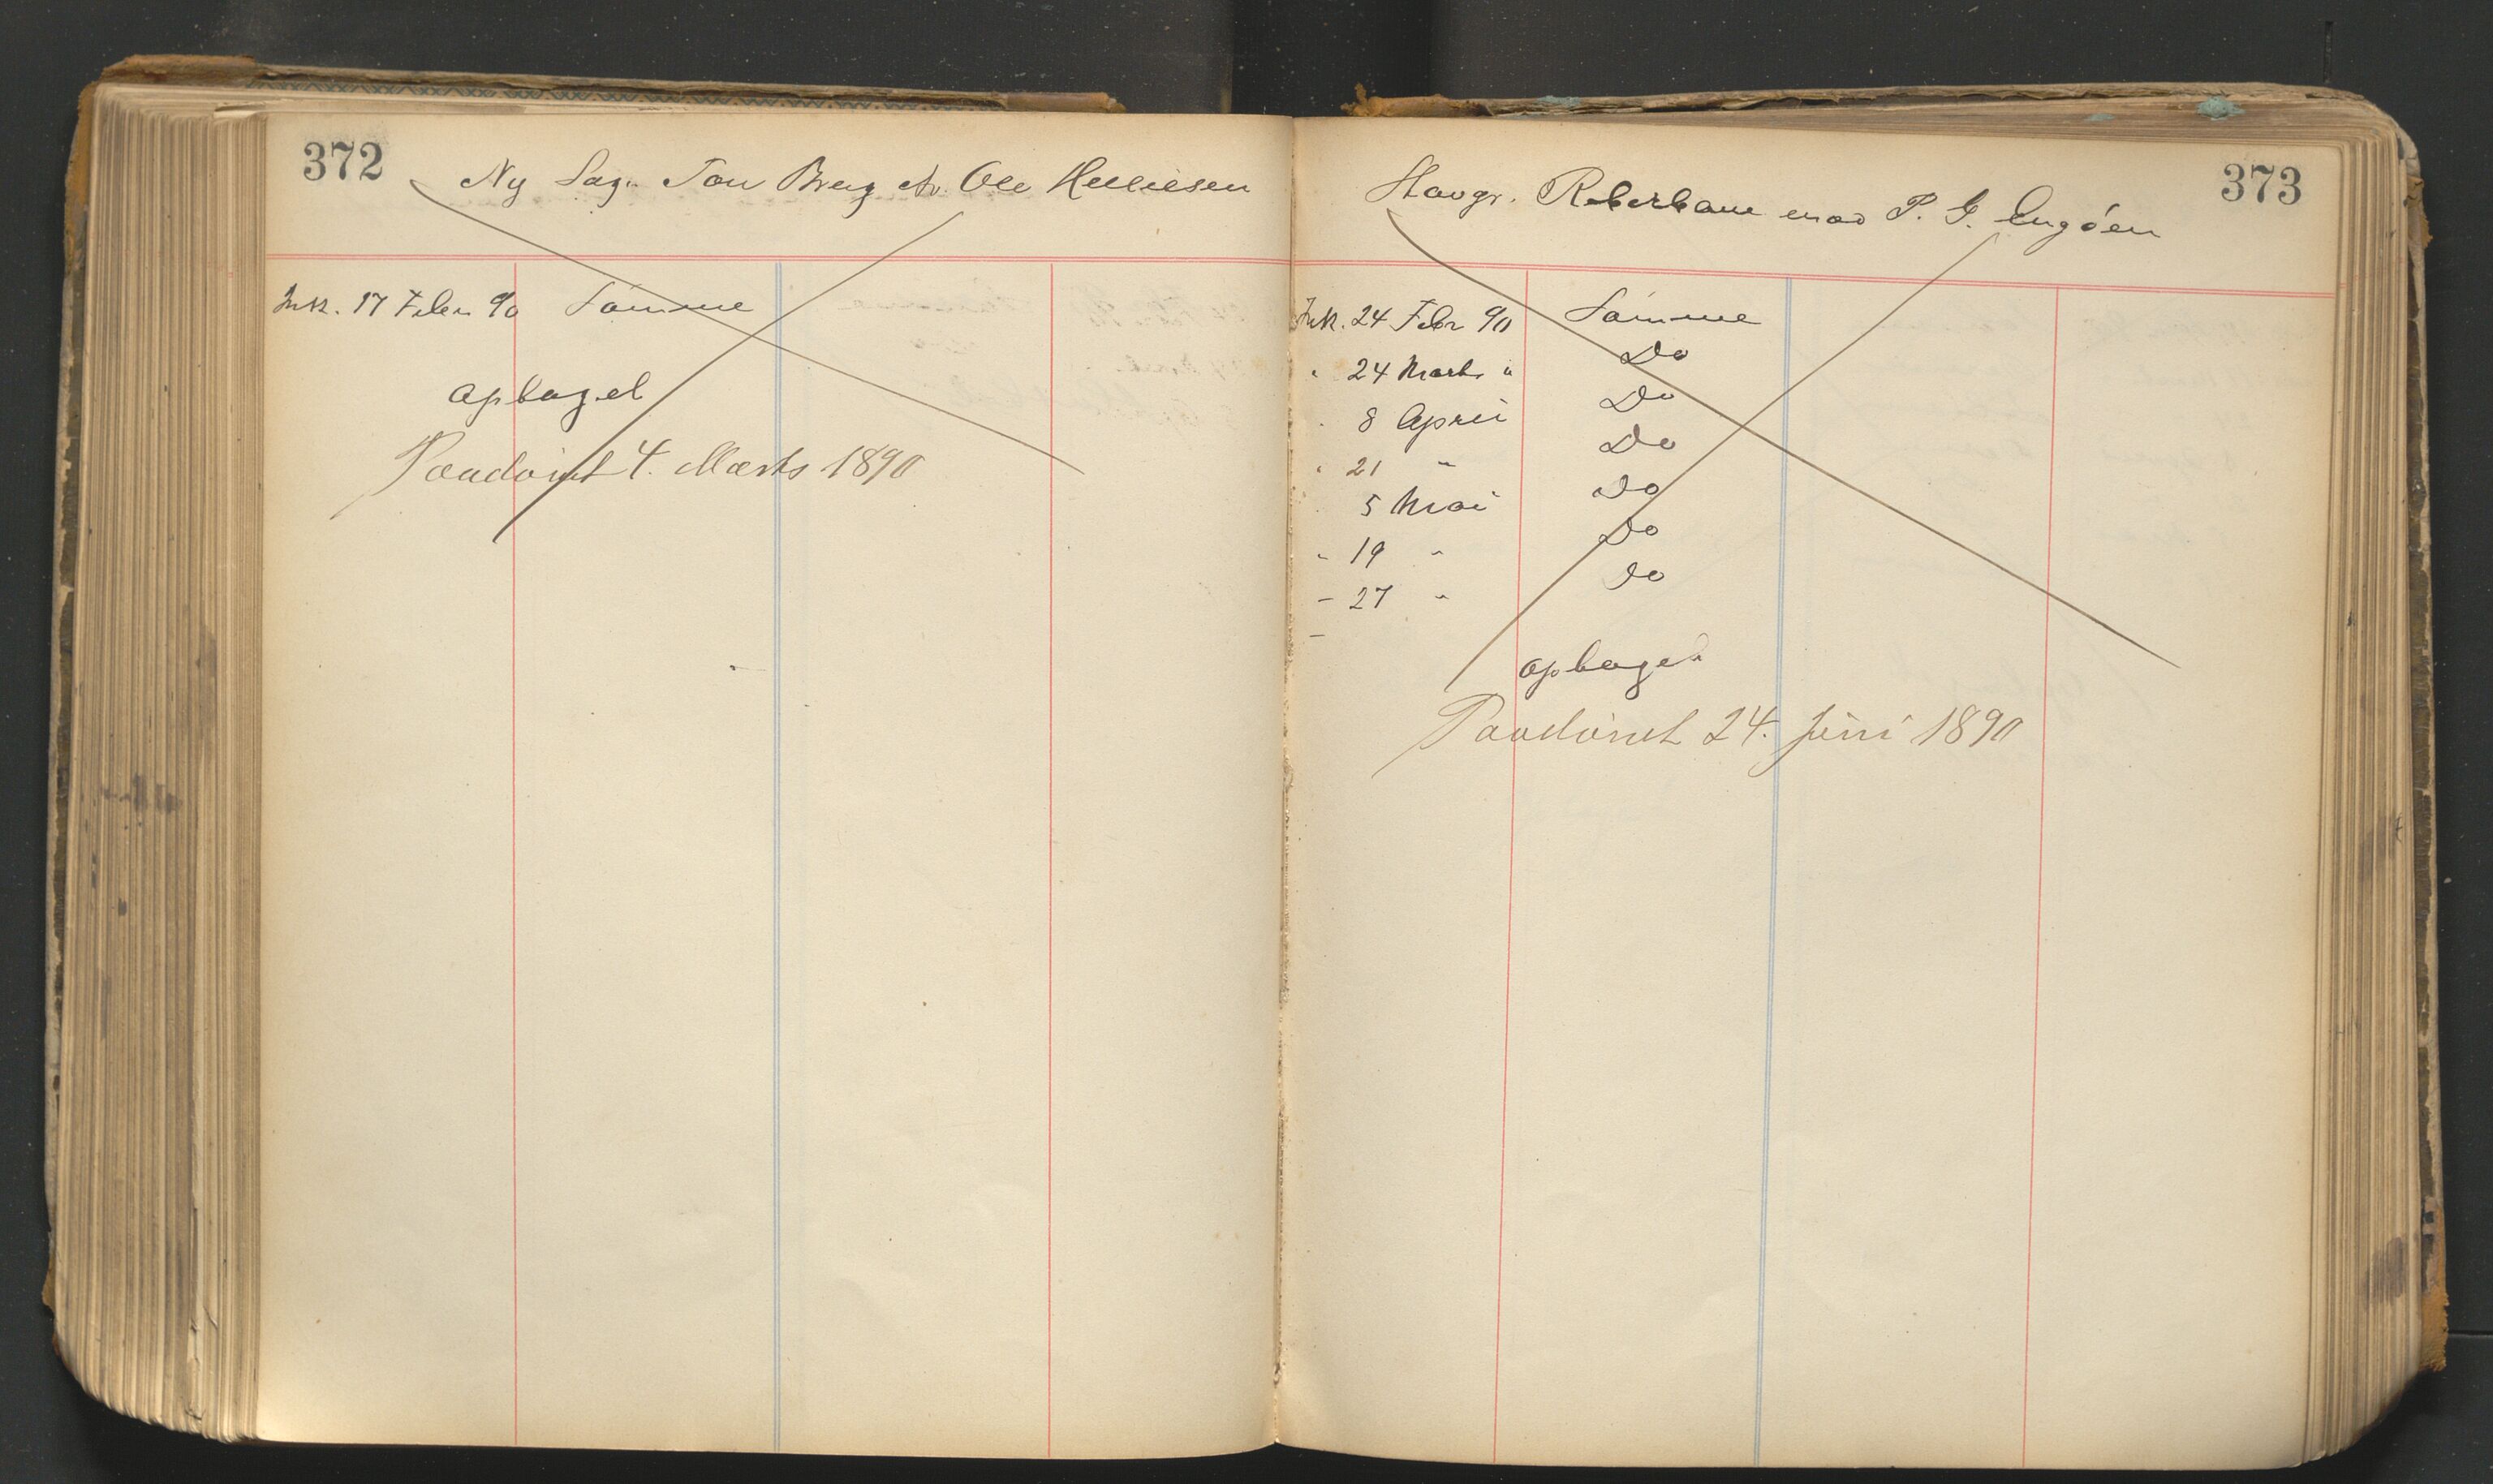 372
Ny Sag. Ton Berg ctr. Ole Hellesen
Ink. 17 Febr 90 Sømme
optaget
Paadømt 4. Marts 1890
373
Stavgr. Reberbane mod P. G. Engøen
Ink. 24 Febr 90 Sømme
" 24 Marts " Do
" 8 April Do
" 21 " Do
5 Mai Do
" 19 " Do
— 27 " Do
—
optaget
Paadømt 24. Juni 1890